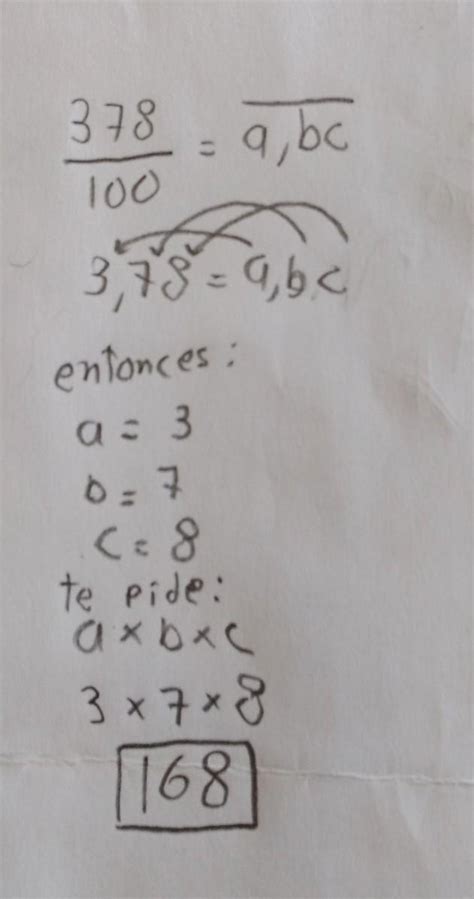 378/100 = a,bc
3,78 = a,bc
entonces:
a = 3
b = 7
c = 8
te pide:
a × b × c
3 × 7 × 8
168